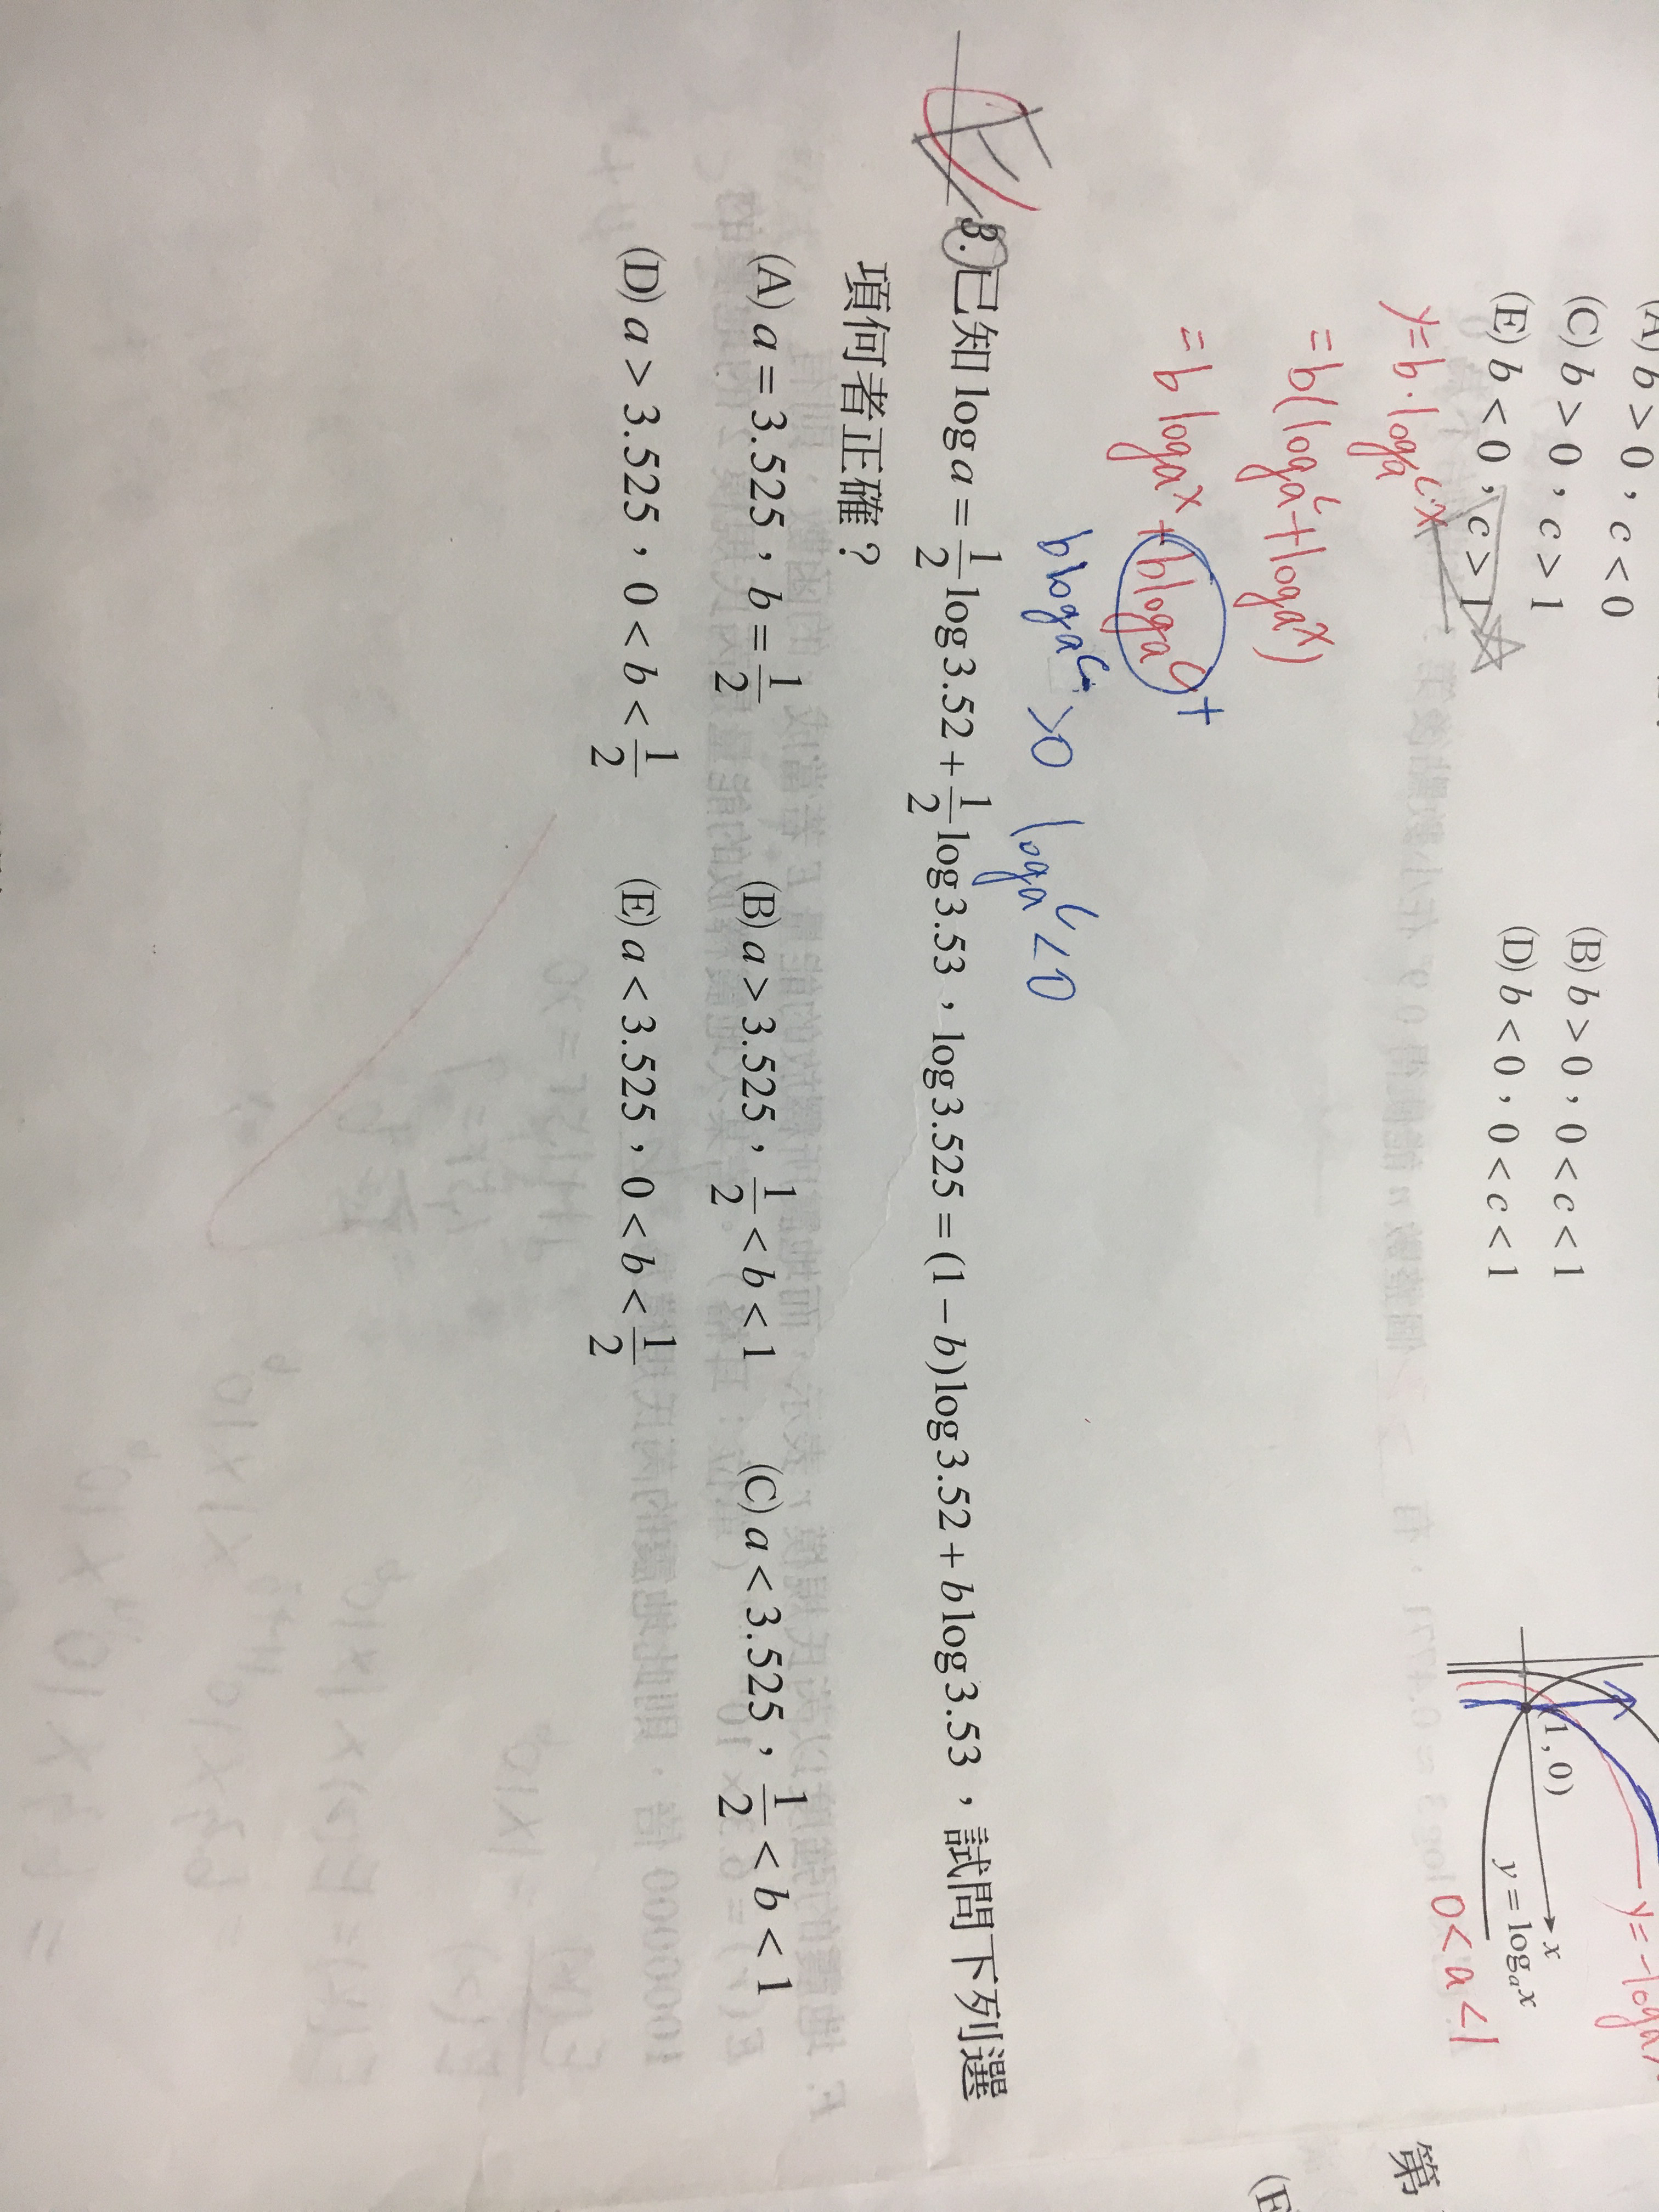 (A) b > 0，c < 0
(B) b > 0，0 < c < 1
(C) b > 0，c > 1
(D) b < 0，0 < c < 1
(E) b < 0，c > 1
(1, 0)
x
y = logₐx
0<a<1
y = b·logₐ c·x
= b(logₐ c + logₐ x)
= b logₐ x + b logₐ c +
b logₐ c > 0 logₐ c < 0
3. 已知 log a = 1/2 log 3.52 + 1/2 log 3.53，log 3.525 = (1 − b) log 3.52 + b log 3.53，試問下列選
項何者正確？
(A) a = 3.525，b = 1/2 (B) a > 3.525，1/2 < b < 1 (C) a < 3.525，1/2 < b < 1
(D) a > 3.525，0 < b < 1/2 (E) a < 3.525，0 < b < 1/2
第